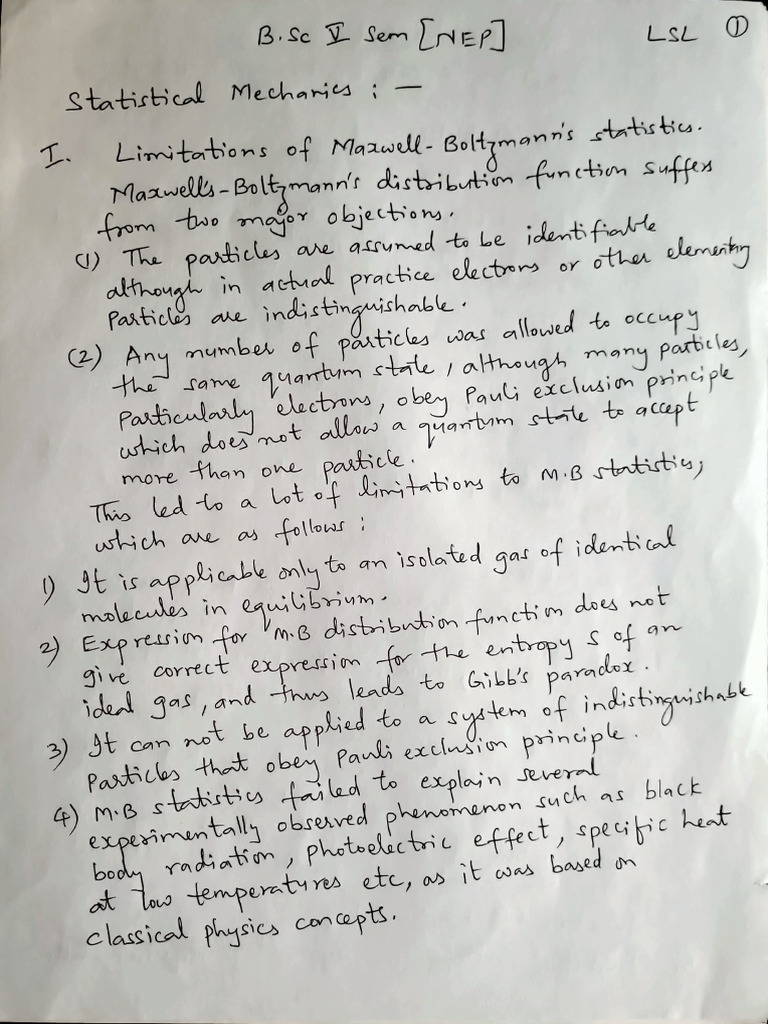 B.Sc V Sem [NEP] LSL 1
Statistical Mechanics : —
I. Limitations of Maxwell-Boltzmann's statistics.
Maxwell's-Boltzmann's distribution function suffers
from two major objections.
(1) The particles are assumed to be identifiable
although in actual practice electrons or other elementry
Particles are indistinguishable.
(2) Any number of particles was allowed to occupy
the same quantum state, although many particles,
Particularly electrons, obey Pauli exclusion principle
which does not allow a quantum state to accept
more than one particle.
This led to a lot of limitations to M.B statistics;
which are as follows :
1) It is applicable only to an isolated gas of identical
molecules in equilibrium.
2) Expression for M.B distribution function does not
give correct expression for the entropy S of an
ideal gas, and thus leads to Gibb's paradox.
3) It can not be applied to a system of indistinguishable
Particles that obey Pauli exclusion principle.
4) M.B statistics failed to explain several
experimentally observed phenomenon such as black
body radiation, photoelectric effect, specific heat
at low temperatures etc, as it was based on
classical physics concepts.